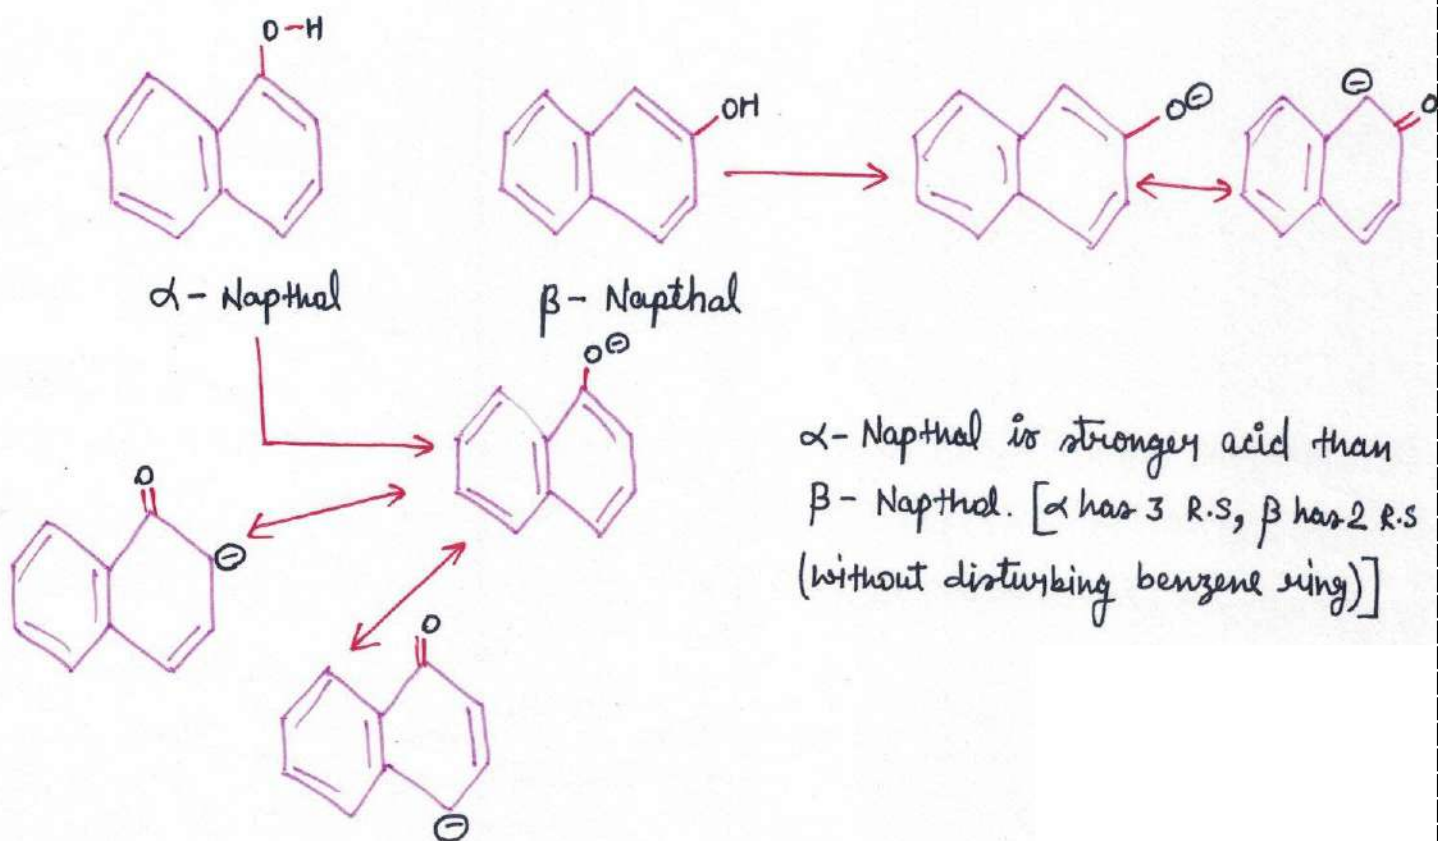 O-H
OH
O⊖
⊖
O
α- Napthol
β- Napthol
O⊖
O
⊖
O
⊖
α- Napthol is stronger acid than
β- Napthol. [α has 3 R.S, β has 2 R.S
(without disturbing benzene ring)]